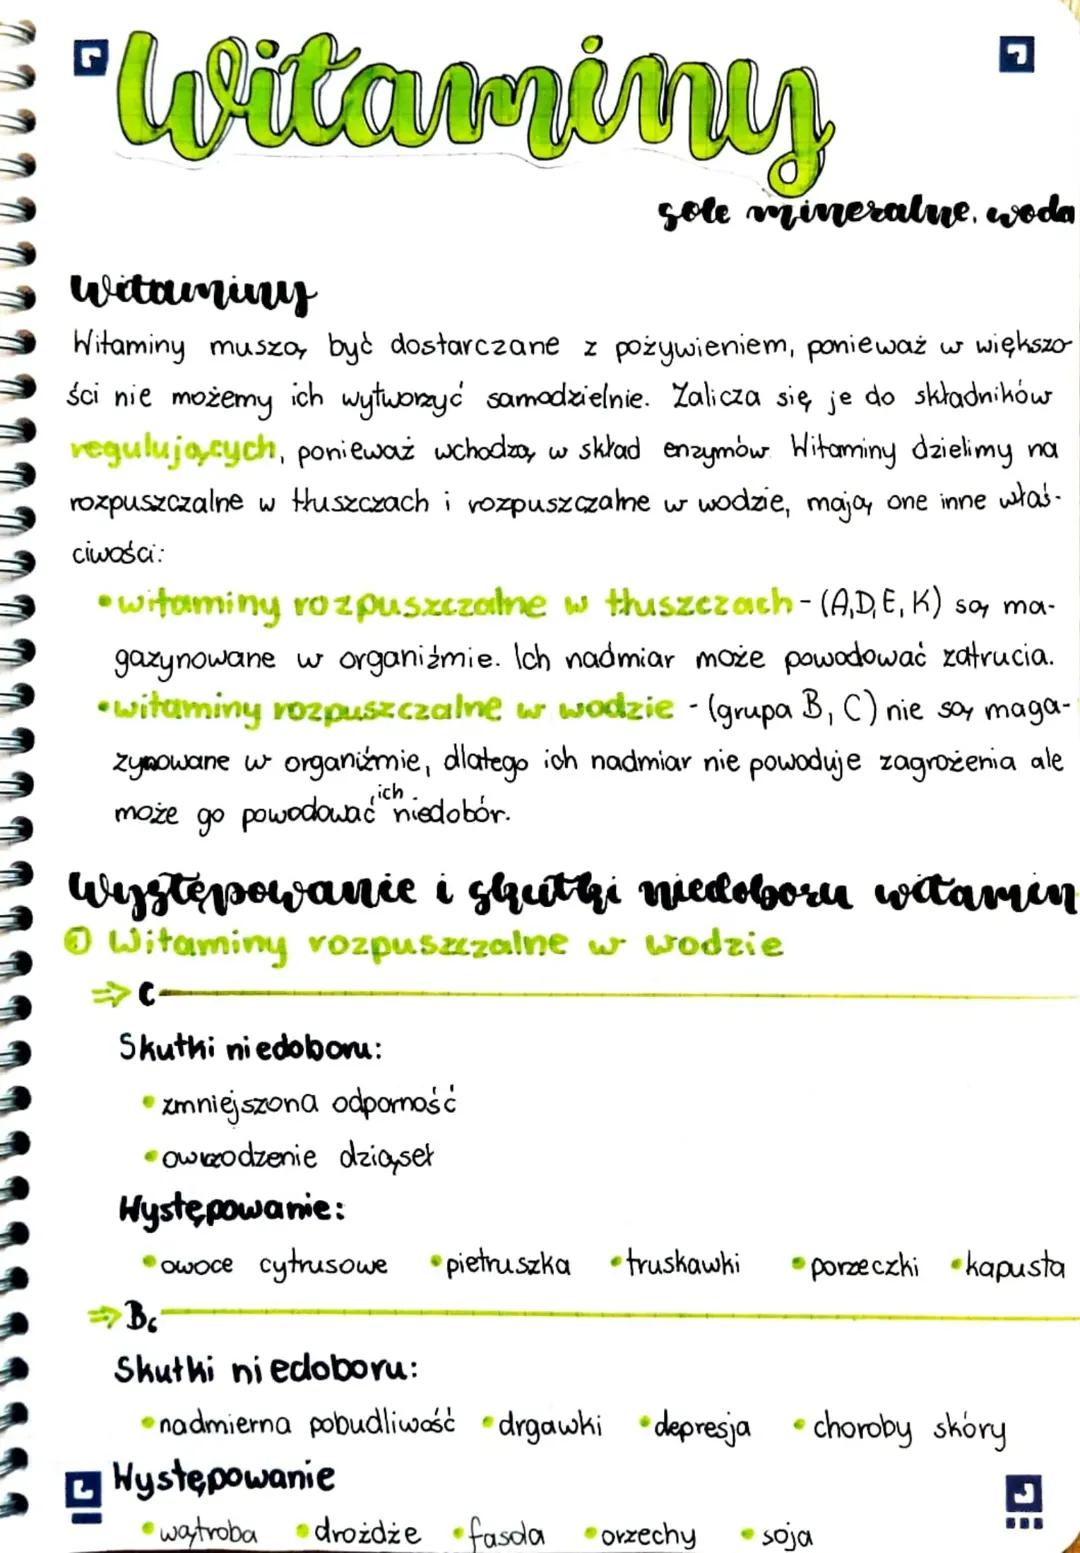 Witaminy
sole mineralne, woda
Witaminy
Witaminy muszą być dostarczane z pożywieniem, ponieważ w większo-
ści nie możemy ich wytworzyć samodzielnie. Zalicza się je do składników
regulujących, ponieważ wchodzą w skład enzymów. Witaminy dzielimy na
rozpuszczalne w tłuszczach i rozpuszczalne w wodzie, mają one inne właś-
ciwości:
•witaminy rozpuszczalne w tłuszczach - (A,D,E,K) są ma-
gazynowane w organiźmie. Ich nadmiar może powodować zatrucia.
•witaminy rozpuszczalne w wodzie - (grupa B, C) nie są maga-
zynowane w organiźmie, dlatego ich nadmiar nie powoduje zagrożenia ale
może go powodować ich niedobór.
Występowanie i skutki niedoboru witamin
① Witaminy rozpuszczalne w wodzie
⇒ C
Skutki niedoboru:
•zmniejszona odporność
•owrzodzenie dziąseł
Występowanie:
•owoce cytrusowe •pietruszka •truskawki •porzeczki •kapusta
⇒ B₆
Skutki niedoboru:
•nadmierna pobudliwość •drgawki •depresja •choroby skóry
Występowanie
•wątroba •drożdże •fasola •orzechy •soja